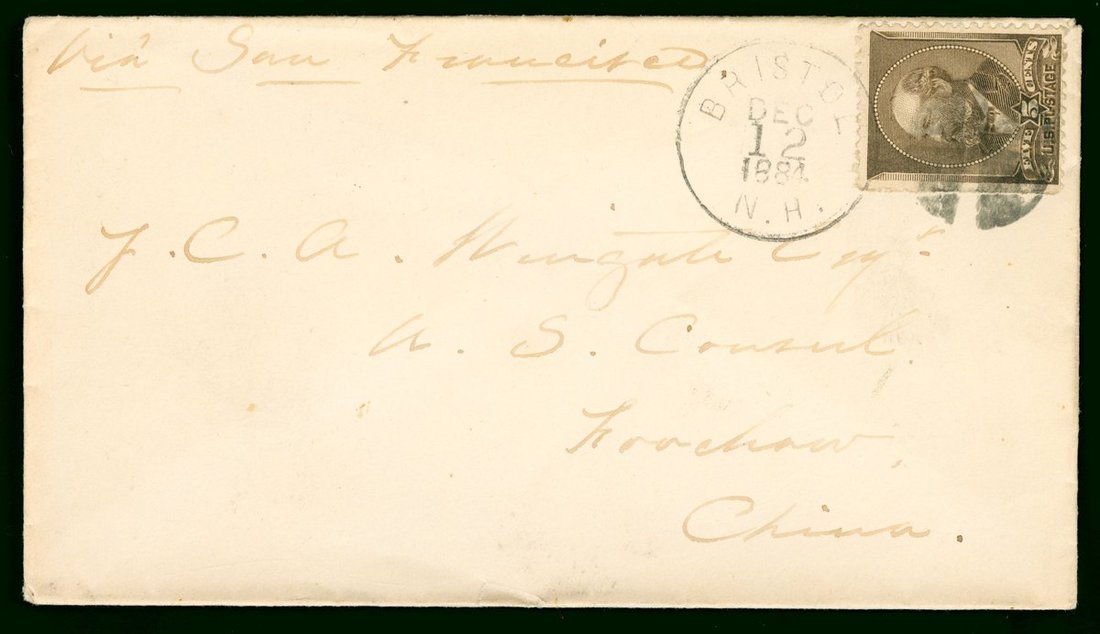 Via San Francisco.
BRISTOL
DEC
12
1884
N.H.
FIVE 5 CENTS
U.S. POSTAGE
J. C. A. Wingate Esqr.
U. S. Consul.
Foochow,
China.